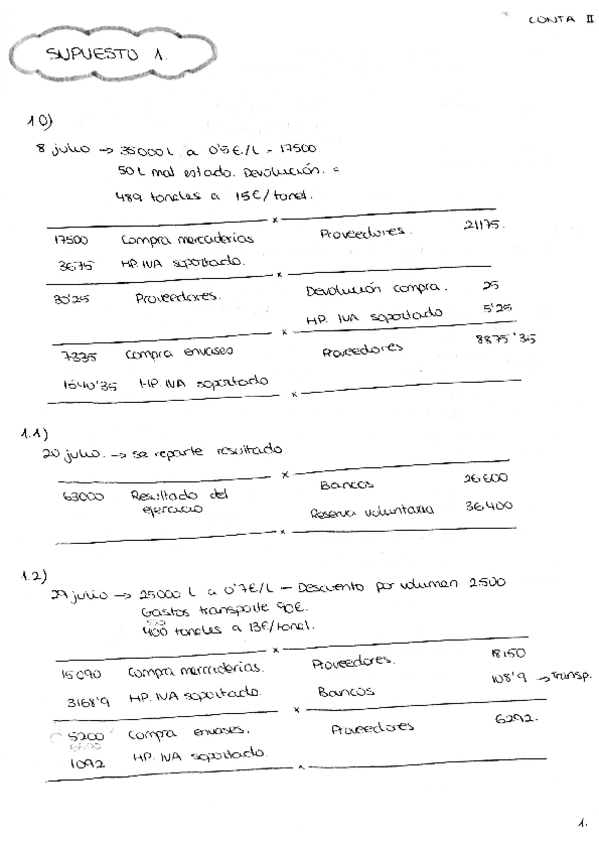 CONTA II
SUPUESTO 1.
10)
8 julio → 35000 L a 0'5 €/L - 17500
50 L mal estado. Devolución. =
489 toneles a 15€/tonel.
x
17500 Compra mercaderías Proveedores. 21175.
3675 HP. IVA soportado.
x
30'25 Proveedores. Devolución compra. 25
HP. IVA soportado 5'25
x
7335 Compra envases Proveedores 8875'35
1540'35 HP. IVA soportado
x
1.1)
20 julio. → se reparte resultado
x
63000 Resultado del ejercicio Bancos 26600
Reserva voluntaria 36400
x
1.2)
29 julio → 25000 L a 0'7€/L - Descuento por volumen 2500
Gastos transporte 90€.
400 toneles a 13€/tonel.
x
15090 Compra mercaderías. Proveedores. 18150
3168'9 HP. IVA soportado. Bancos 108'9 → Transp.
x
5200 Compra envases. Proveedores 6292.
1092 HP. IVA soportado.
1.